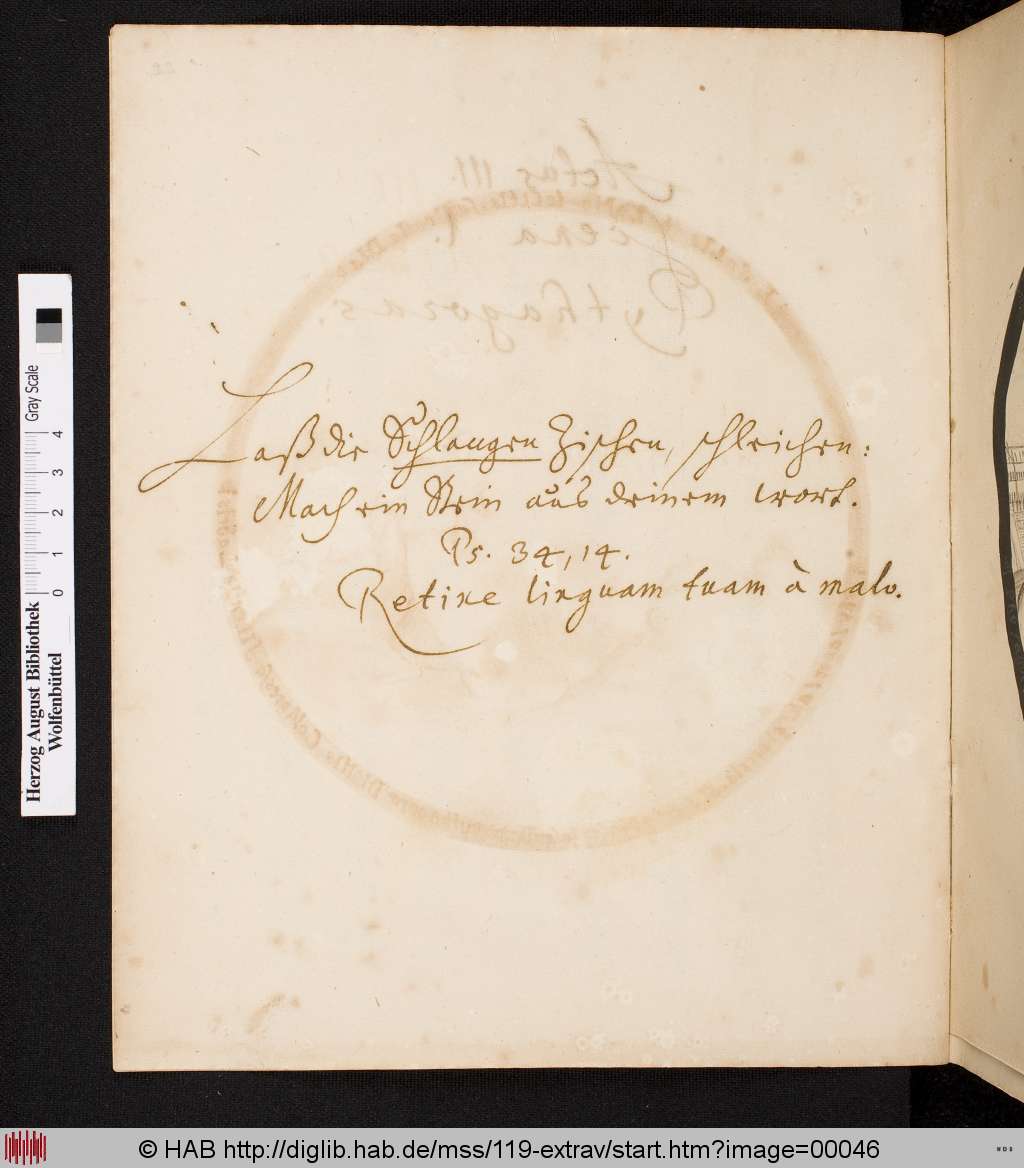 Laß die Schlangen Zischen, schleichen:
Mach ein Stein aus deinem wort.
Ps. 34, 14.
Retine linguam tuam à malo.
Actus III.
Scena I.
Pythagoras.
Herzog August Bibliothek
Wolfenbüttel
0 1 2 3 4
Gray Scale
© HAB http://diglib.hab.de/mss/119-extrav/start.htm?image=00046